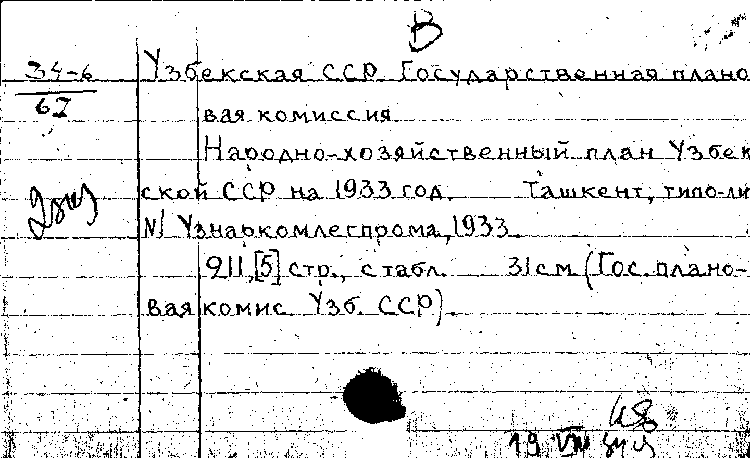 В
34-6 Узбекская ССР. Государственная плано
67 вая комиссия.
Народно-хозяйственный план Узбек
2экз ской ССР на 1933 год. Ташкент, типо-ли
№1 Узнаркомлегпрома, 1933.
911,[5] стр., с табл. 31 см (Гос. плано-
вая комис. Узб. ССР).
19 VIII